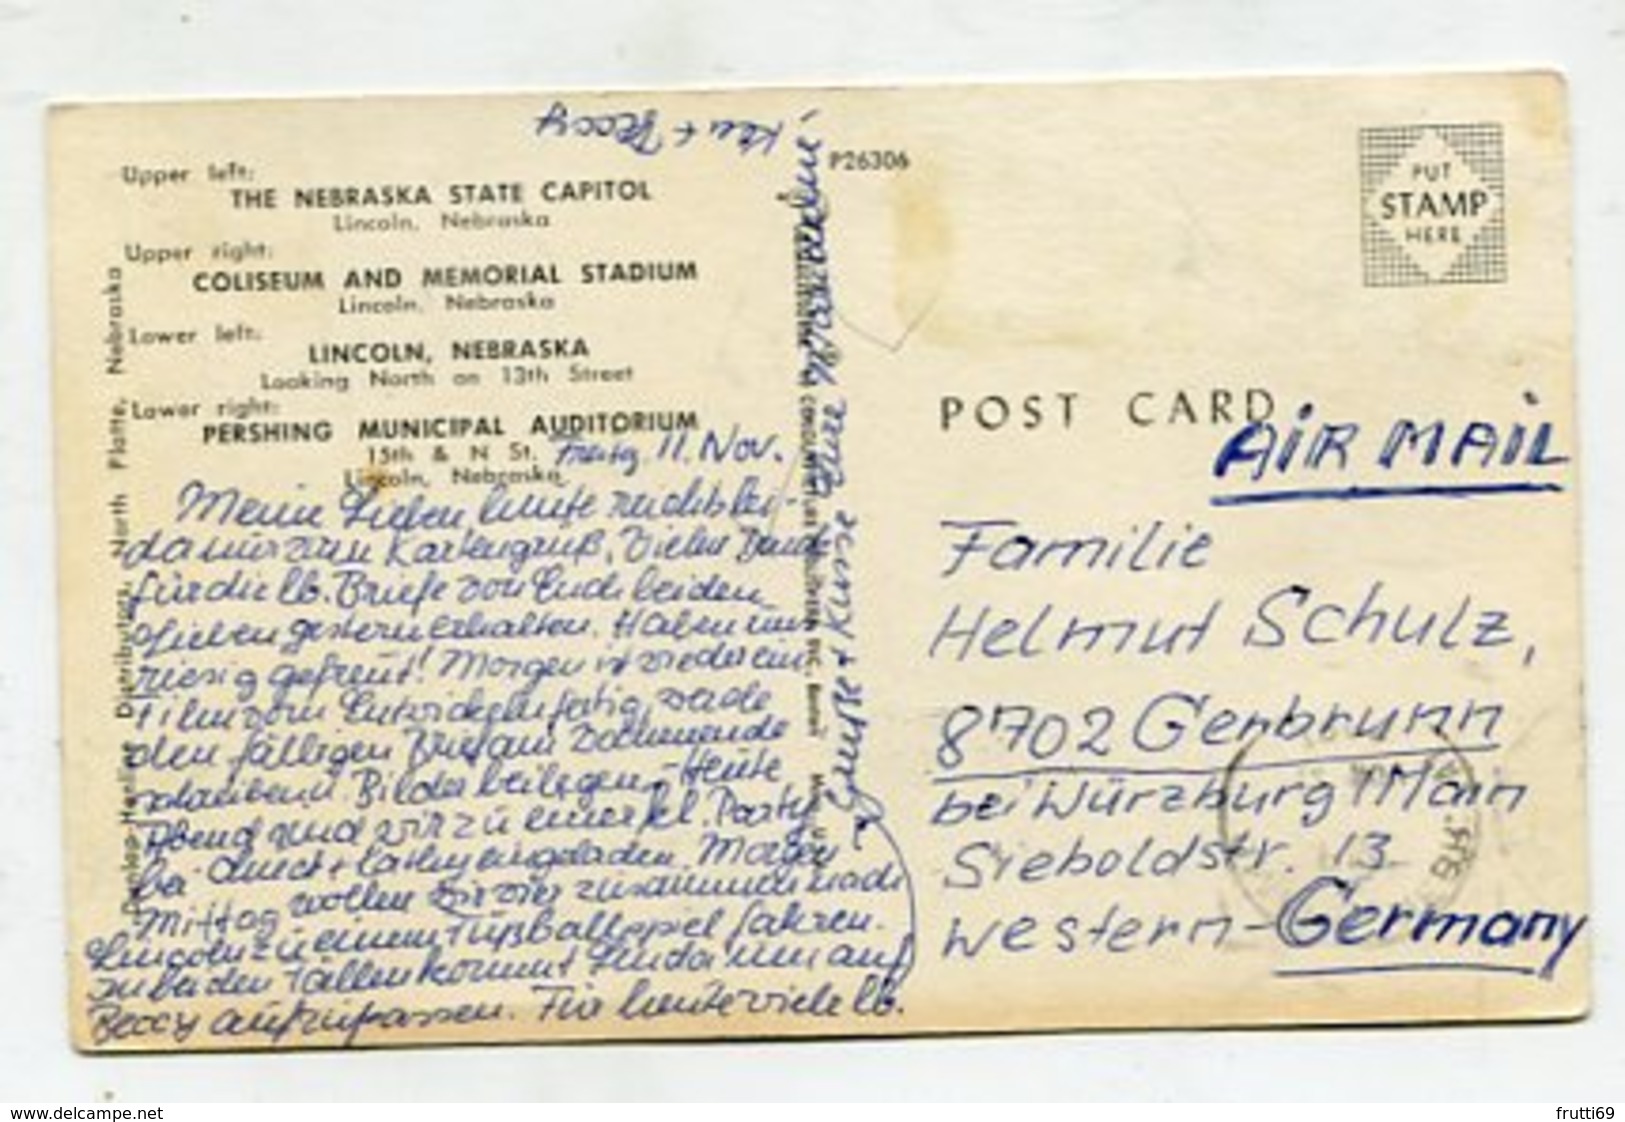 Upper left:
THE NEBRASKA STATE CAPITOL
Lincoln, Nebraska
Upper right:
COLISEUM AND MEMORIAL STADIUM
Lincoln, Nebraska
Lower left:
LINCOLN, NEBRASKA
Looking North on 13th Street
Lower right:
PERSHING MUNICIPAL AUDITORIUM
15th & N St.
Lincoln, Nebraska
Freitag 11. Nov.
Meine Lieben, heute reicht's lei-
da nur zum Kartengruß. Vielen Dank
für die lb. Briefe von Euch beiden
gestern erhalten. Haben uns
riesig gefreut! Morgen ist wieder ein
Film vom Entwickeln fertig, werde
den fälligen Brief am Wochenende
schreiben u. Bilder beilegen. - Heute
Abend sind wir zu einer kl. Party
bei + Cathy eingeladen. Morgen
Mittag wollen wir vier zusammen nach
Lincoln zu einem Fußballspiel fahren.
In beiden Fällen kommt Linda um auf
Beccy aufzupassen. Für heute viele lb.
Grüße + Küsse Eure
+ Beccy
Distributors, North Platte, Nebraska
P26306
PUT
STAMP
HERE
POST CARD
AIR MAIL
Familie
Helmut Schulz,
8702 Gerbrunn
bei Würzburg / Main
Sieboldstr. 13
Western-Germany
www.delcampe.net
frutti69